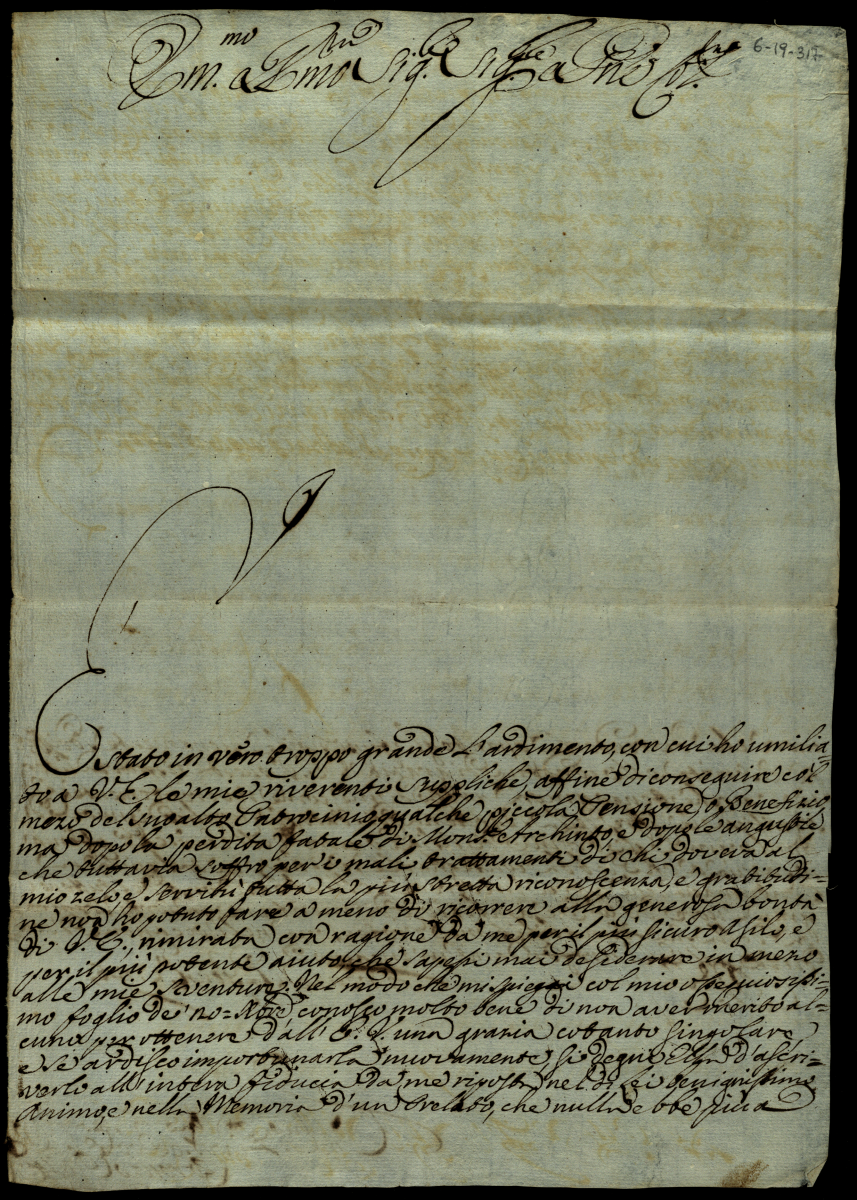 Em.mo e Rmo Sig.re Sig.re e Pne Col.mo
6-19-317
E stato in vero troppo grande l'ardimento, con cui ho umilia-
to a V. E. le mie riverenti suppliche, affine di conseguire col
mezo del suo alto Patrocinio qualche piccola Pensione, o Benefizio
ma dopo la perdita fatale di Mons.r Archinto, e dopo le angustie
che tuttavia soffro per i mali trattamenti di chi doveva al
mio zelo, e servitù tutta la più stretta riconoscenza, e gratitudi-
ne non ho potuto fare a meno di ricorrere alla generosa bontà
di V. E., rimirata con ragione da me per il più sicuro Asilo, e
per il più potente aiuto, che sapessi mai desiderare in mezo
alle mie sventure. Nel modo che mi spiegai col mio ossequiosissi-
mo foglio de' 20. Nov.e conosco molto bene di non aver merito al-
cuno per ottenere dall' E. V. una grazia cotanto singolare
e se ardisco importunarla nuovamente, si degni Ella d'ascri-
verlo all'intera fiducia da me riposta nel di Lei benignissimo
Animo, e nella Memoria d'un Prelato, che nulla ebbe più a